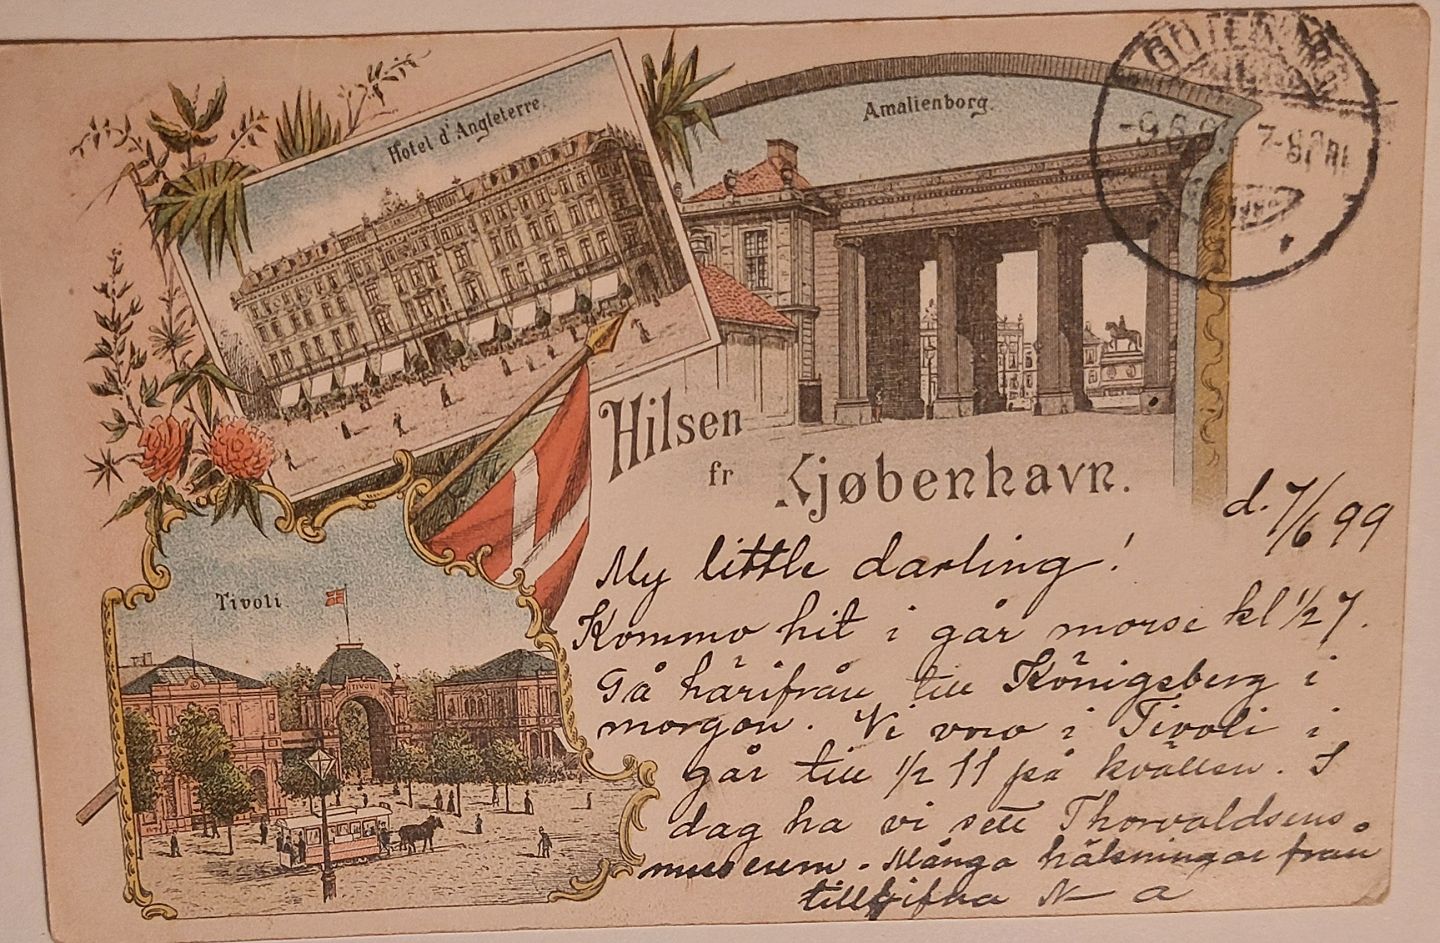 Hotel d'Angleterre.
Amalienborg.
GÖTEBORG
Hilsen
fr
Kjøbenhavn.
Tivoli
TIVOLI
d. 7/6 99
My little darling!
Kommo hit i går morse kl 1/2 7.
Gå härifrån till Königsberg i
morgon. Vi voro i Tivoli i
går till 1/2 11 på kvällen. I
dag ha vi sett Thorvaldsens
museum. Många hälsningar från